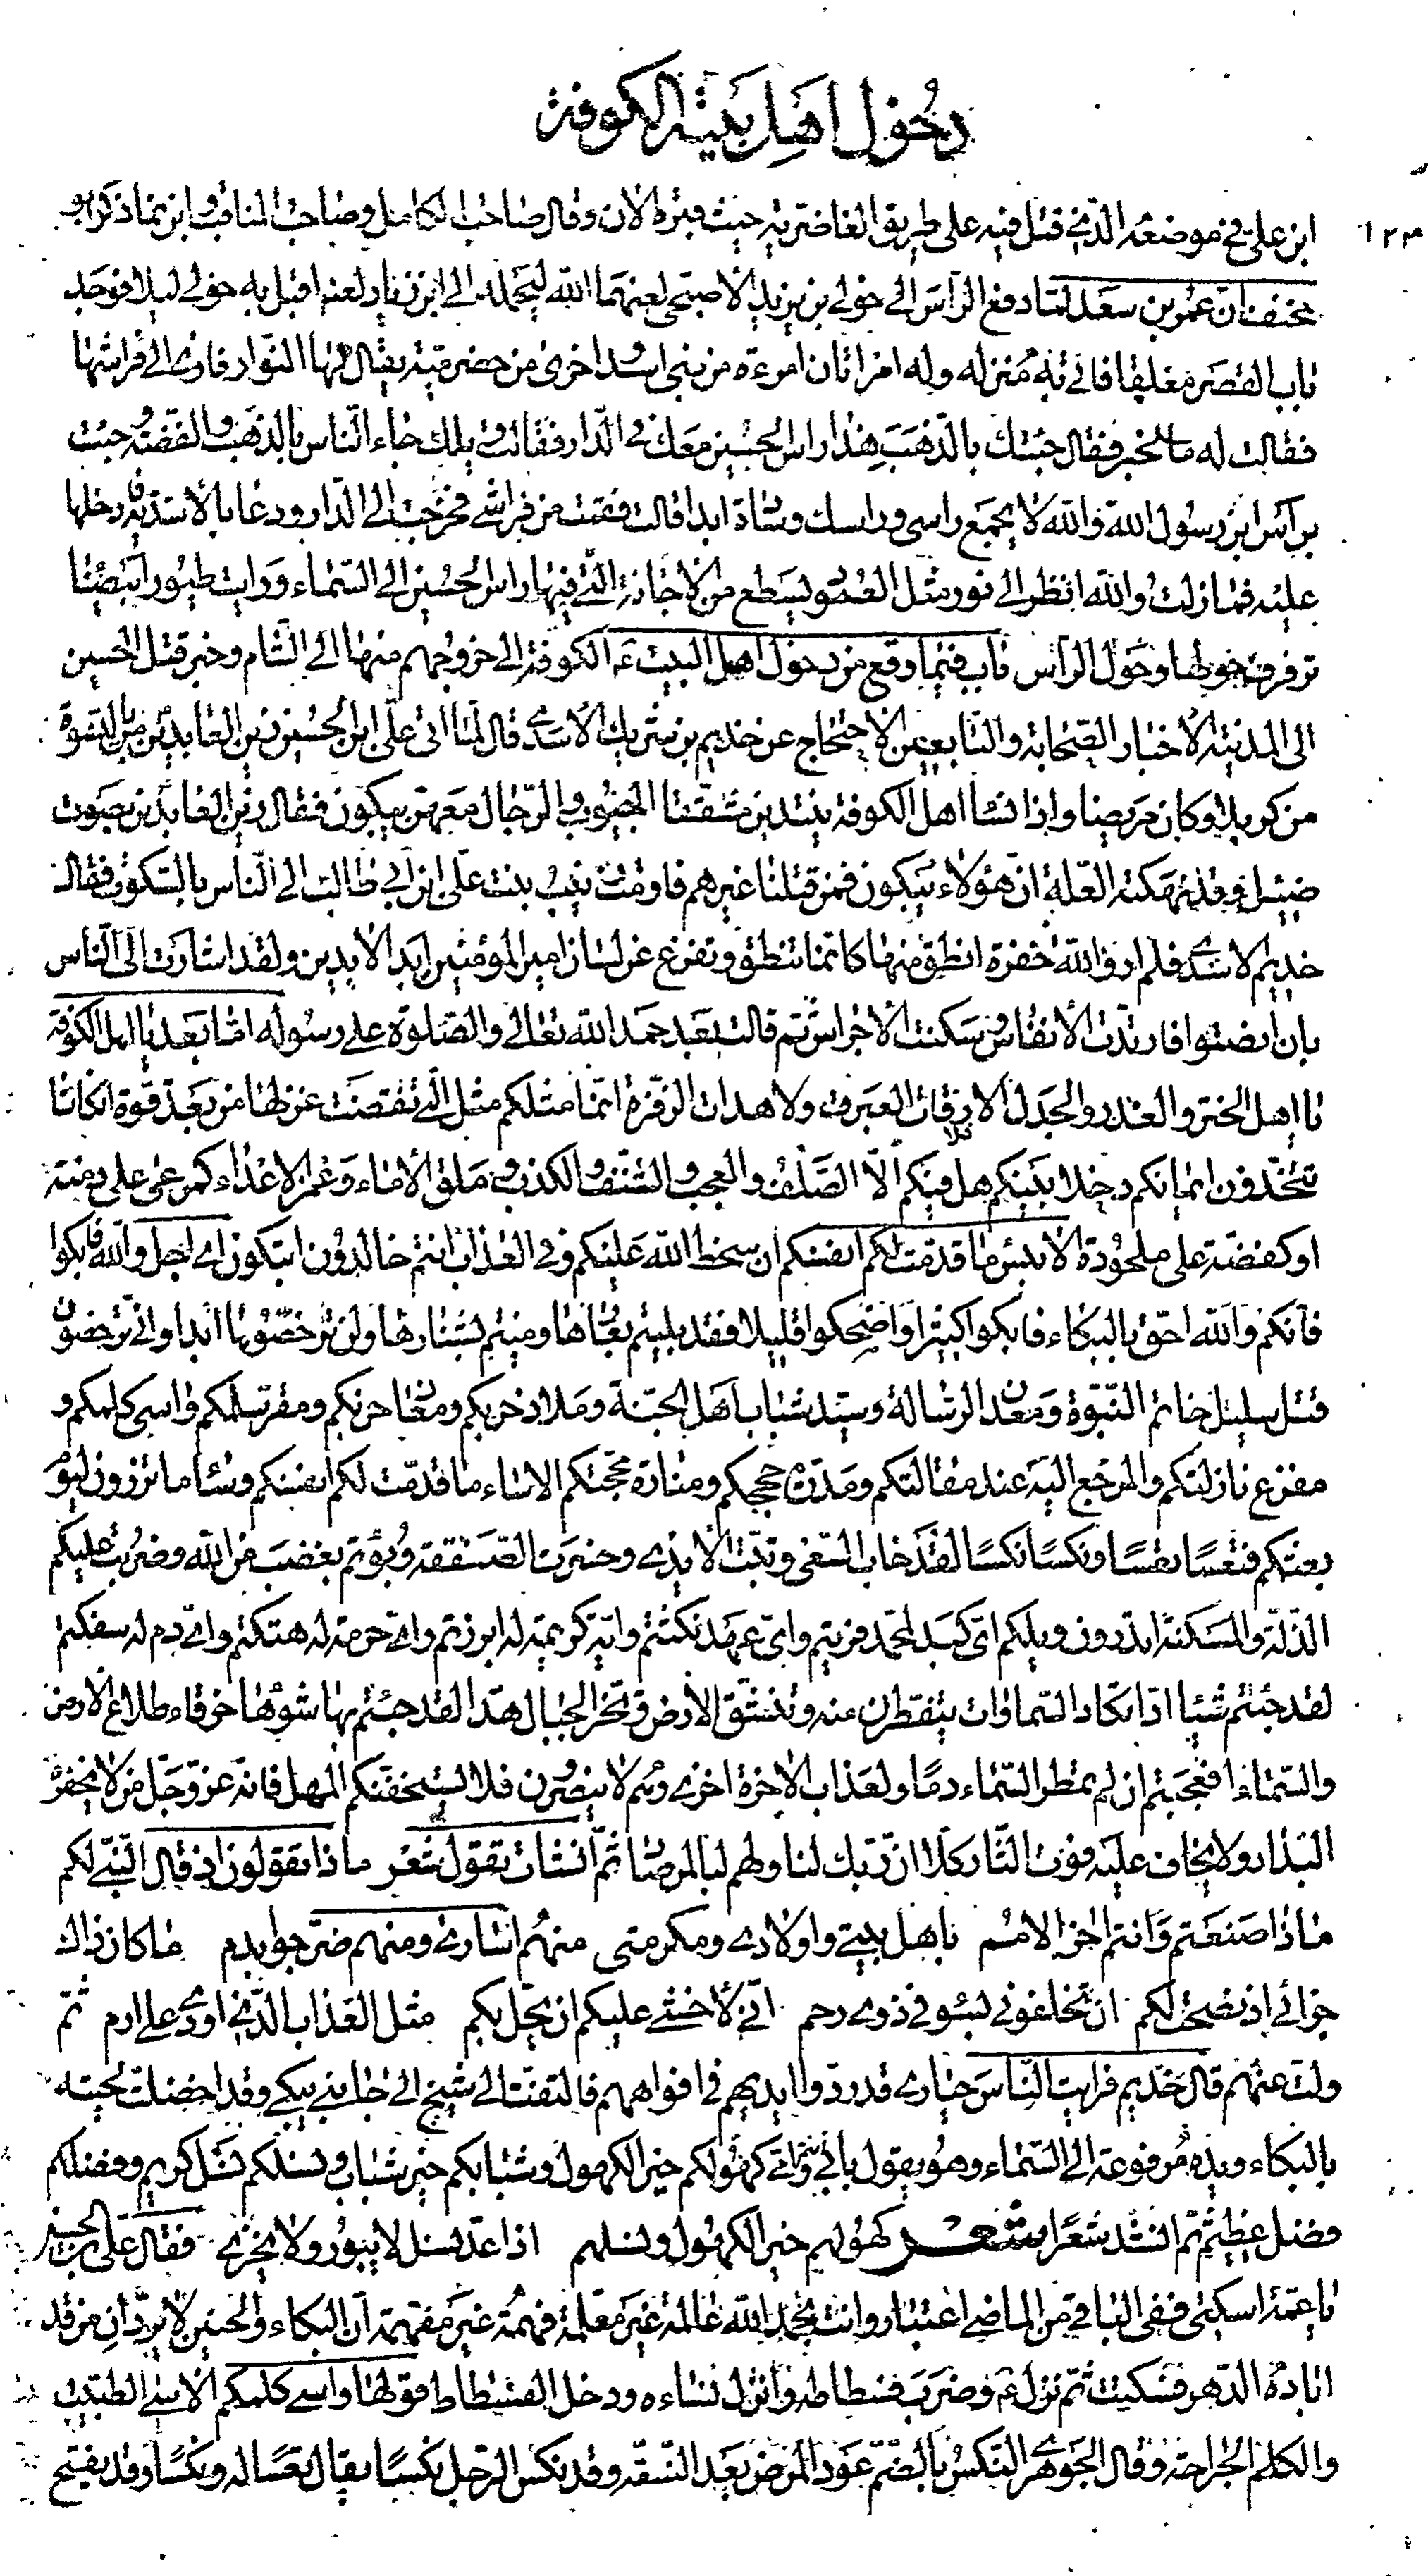 دخول اهل بيته الكوفة
١٢٣
ابن علي في موضعه الذي قتل فيه على طريق الغاضرية حيث قبره الان وقال صاحب الكامل وصاحب المناقب وابن نما ذكر ابو
مخنف ان عمر بن سعد لما دفع الرأس الى خولي بن يزيد الاصبحي لعنهما الله ليحمله الى ابن زياد لعنه اقبل به خولي ليلا فوجد
باب القصر مغلقا فاتى به منزله وله امراتان امرءة من بني اسد واخرى من حضرمية يقال لها النوار فاوى الى فراشها
فقالت له ما الخبر فقال جئتك بالذهب هذا راس الحسين معك في الدار فقالت ويلك جاء الناس بالذهب والفضة وجئت
براس ابن رسول الله والله لا يجمع راسي وراسك وسادة ابدا قالت فقمت من فراشي فخرجت الى الدار ودعا بالاسدية فادخلها
عليه فما زلت والله انظر الى نور مثل العمود يسطع من الاجانة التي فيها راس الحسين الى السماء ورايت طيورا بيضا
ترفرف حولها وحول الرأس باب فيما وقع من دخول اهل البيت ع الكوفة الى خروجهم منها الى الشام وخبر قتل الحسين
الى المدينة الاخبار الصحابة والتابعين الاحتجاج عن خديم بن شريك الاسدي قال لما اتى علي ابن الحسين زين العابدين بالنسوة
من كربلا وكان مريضا واذا نساء اهل الكوفة ينتدبن مشققات الجيوب والرجال معهن يبكون فقال زين العابدين بصوت
ضئيل وقد نهكته العلة ان هؤلاء يبكون فمن قتلنا غيرهم فاومت زينب بنت علي ابن ابي طالب الى الناس بالسكوت فقال
خديم الاسدي فلم ار والله خفرة انطق منها كانما تنطق وتفرغ عن لسان امير المؤمنين ابد الابدين ولقد اشارت الى الناس
بان انصتوا فارتدت الانفاس وسكنت الاجراس ثم قالت بعد حمد الله تعالى والصلوة على رسوله اما بعد يا اهل الكوفة
يا اهل الختر والغدر والجدل الا فلا رقات العبرة ولا هدات الزفرة انما مثلكم مثل التي نقضت غزلها من بعد قوة انكاثا
تتخذون ايمانكم دخلا بينكم هل فيكم الا الصلف والعجب والشنف والكذب وملق الاماء وغمز الاعداء كمرعى على دمنة
او كفضة على ملحودة الا بئس ما قدمت لكم انفسكم ان سخط الله عليكم وفي العذاب انتم خالدون اتبكون اي اجل والله فابكوا
فانكم والله احق بالبكاء فابكوا كثيرا واضحكوا قليلا فقد بليتم بعارها ومنيتم بشنارها ولن ترحضوها ابدا وانى ترحضون
قتل سليل خاتم النبوة ومعدن الرسالة وسيد شباب اهل الجنة وملاذ حربكم ومعاذ حزبكم ومقر سلمكم واسى كلمكم و
مفزع نازلتكم والمرجع اليه عند مقالتكم ومدرة حججكم ومنارة محجتكم الا ساء ما قدمت لكم انفسكم وساء ما تزرون ليوم
بعثكم فتعسا تعسا ونكسا نكسا لقد خاب السعي وتبت الايدي وخسرت الصفقة وبؤتم بغضب من الله وضربت عليكم
الذلة والمسكنة اتدرون ويلكم اي كبد لمحمد فريتم واي عهد نكثتم واية كريمة له ابرزتم واي حرمة له هتكتم واي دم له سفكتم
لقد جئتم شيئا ادا تكاد السماوات يتفطرن منه وتنشق الارض وتخر الجبال هدا لقد جئتم بها شوهاء خرقاء طلاع الارض
والسماء افعجبتم ان لم تمطر السماء دما ولعذاب الاخرة اخزى وهم لا ينصرون فلا يستخفنكم المهل فانه عز وجل من لا يحفزه
البدار ولا يخاف عليه فوت الثار كلا ان ربك لنا ولهم لبالمرصاد ثم انشات تقول شعر ماذا تقولون اذ قال النبي لكم
ماذا صنعتم وانتم اخر الامم باهل بيتي واولادي ومكرمتي منهم اسارى ومنهم ضرجوا بدم ما كان ذاك
جزائي اذ نصحت لكم ان تخلفوني بسوء في ذوي رحم اني لاخشى عليكم ان يحل بكم مثل العذاب الذي اودى على ارم ثم
ولت عنهم قال خديم فرايت الناس حيارى قد ردوا ايديهم في افواههم فالتفت الى شيخ الى جانبي يبكي وقد اخضلت لحيته
بالبكاء ويده مرفوعة الى السماء وهو يقول بابي وامي كهولكم خير الكهول وشبابكم خير شباب ونسلكم نسل كريم وفضلكم
فضل عظيم ثم انشد شعرا شعر كهولهم خير الكهول ونسلهم اذا عد نسل لا يبور ولا يخزي فقال علي بن الحسين
يا عمة اسكتي ففي الباقي من الماضي اعتبار وانت بحمد الله عالمة غير معلمة فهمة غير مفهمة ان البكاء والحنين لا يردان من قد
اباده الدهر فسكتت ثم نزل ع وضرب فسطاطه وانزل نساءه ودخل الفسطاط قولها واسى كلمكم الاسى الطبيب
والكلم الجراحة وقال الجوهري النكس بالضم عود المرض بعد النقه وقد نكس الرجل نكسا يقال تعسا له ونكسا وقد يفتح